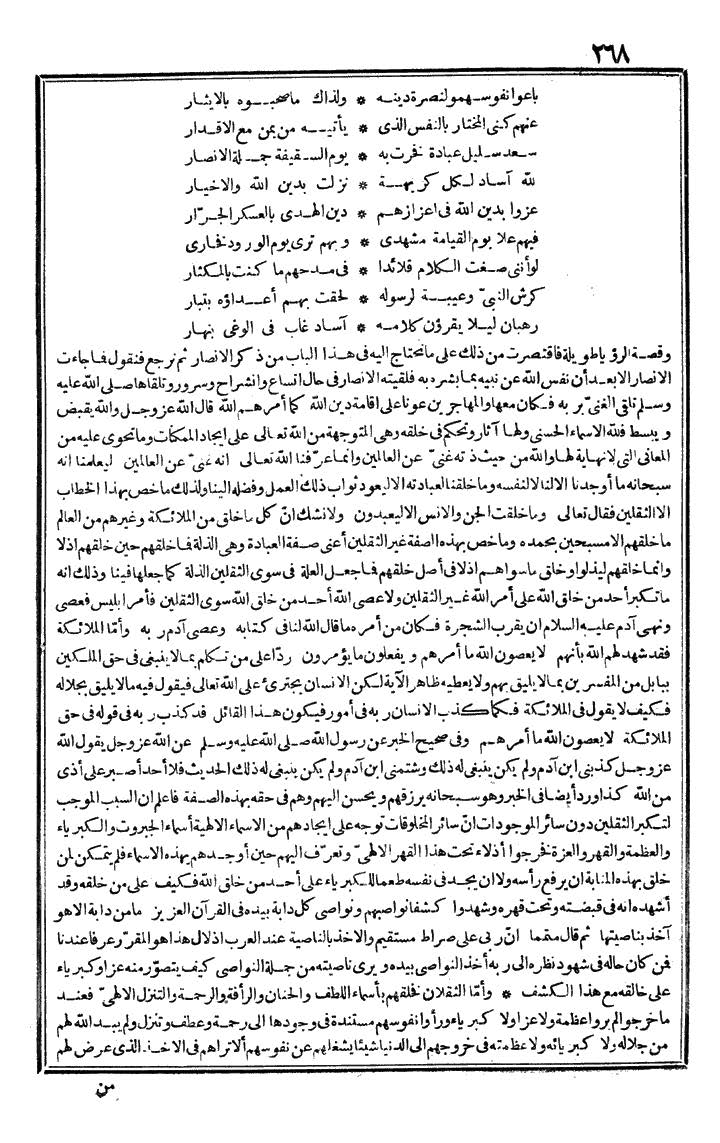 ٣٦٨
باعوا نفوسهمو لنصرة دينه * ولذاك ما صحبوه بالايثار
عنهم كنى المختار بالنفس الذى * يأتيه من يمن مع الاقدار
سعد سليل عبادة فخرت به * يوم السقيفة جملة الانصار
لله آساد لكل كريهة * نزلت بدين الله والاخيار
عزوا بدين الله فى اعزازهم * دين الهدى بالعسكر الجرّار
فيهم علا يوم القيامة مشهدى * وبهم ترى يوم الورود فخارى
لو أننى صغت الكلام قلائدا * فى مدحهم ما كنت بالمكثار
كرش النبىّ وعيبة لرسوله * لحقت بهم أعداؤه بتبار
رهبان ليلا يقرؤن كلامه * آساد غاب فى الوغى بنهار
وقصة الرؤيا طويلة فاقتصرت من ذلك على ما نحتاج اليه فى هذا الباب من ذكر الانصار ثم نرجع فنقول فاجاءت
الانصار الا بعد أن نفس الله عن نبيه بما بشره به فلقيته الانصار فى حال اتساع وانشراح وسرور وتلقاها صلى الله عليه
وسلم تلقى الغنىّ بربه فكان معها والمهاجرين عونا على اقامة دين الله كما أمرهم الله قال الله عز وجل والله يقبض
ويبسط فلله الاسماء الحسنى ولها آثار وتحكم فى خلقه وهى المتوجهة من الله تعالى على ايجاد الممكنات وما تحوى عليه من
المعانى التى لا نهاية لها والله من حيث ذته غنىّ عن العالمين وانما عرّفنا الله تعالى انه غنىّ عن العالمين ليعلمنا انه
سبحانه ما أوجدنا الا لنا لا لنفسه وما خلقنا لعبادته الا ليعود ثواب ذلك العمل وفضله الينا ولذلك ما خص بهذا الخطاب
الا الثقلين فقال تعالى وما خلقت الجن والانس الا ليعبدون ولا نشك انّ كل ما خلق من الملائكة وغيرهم من العالم
ما خلقهم الا مسبحين بحمده وما خص بهذه الصفة غير الثقلين أعنى صفة العبادة وهى الذلة فما خلقهم حين خلقهم اذلا
وانما خلقهم ليذلوا وخلق ما سواهم اذلا فى أصل خلقهم فما جعل العلة فى سوى الثقلين الذلة كما جعلها فينا وذلك انه
ما تكبر أحد من خلق الله على أمر الله غير الثقلين ولا عصى الله أحد من خلق الله سوى الثقلين فأمر ابليس فعصى
ونهى آدم عليه السلام ان يقرب الشجرة فكان من أمره ما قال الله لنا فى كتابه وعصى آدم ربه وأمّا الملائكة
فقد شهد لهم الله بأنهم لا يعصون الله ما أمرهم ويفعلون ما يؤمرون ردّا على من تكلم بما لا ينبغى فى حق الملكين
ببابل من المفسرين بما لا يليق بهم ولا يعطيه ظاهر الآية لكن الانسان يجترئ على الله تعالى فيقول فيه ما لا يليق بجلاله
فكيف لا يقول فى الملائكة فكما كذب الانسان ربه فى أمور فيكون هذا القائل قد كذب ربه فى قوله فى حق
الملائكة لا يعصون الله ما أمرهم وفى صحيح الخبر عن رسول الله صلى الله عليه وسلم عن الله عز وجل يقول الله
عز وجل كذبنى ابن آدم ولم يكن ينبغى له ذلك وشتمنى ابن آدم ولم يكن ينبغى له ذلك الحديث فلا أحد أصبر على أذى
من الله كذا ورد أيضا فى الخبر وهو سبحانه يرزقهم ويحسن اليهم وهم فى حقه بهذه الصفة فاعلم ان السبب الموجب
لتكبر الثقلين دون سائر الموجودات انّ سائر المخلوقات توجه على ايجادهم من الاسماء الالهية أسماء الجبروت والكبرياء
والعظمة والقهر والعزة فخرجوا أذلاء تحت هذا القهر الالهىّ وتعرّف اليهم حين أوجدهم بهذه الاسماء فلم يتمكن لمن
خلق بهذه المثابة ان يرفع رأسه ولا ان يجد فى نفسه طعما للكبرياء على أحد من خلق الله فكيف على من خلقه وقد
أشهده انه فى قبضته وتحت قهره وشهدوا كشفا نواصيهم ونواصى كل دابة بيده فى القرآن العزيز ما من دابة الا هو
آخذ بناصيتها ثم قال متمما انّ ربى على صراط مستقيم والاخذ بالناصية عند العرب اذلال هذا هو المقرّر عرفا عندنا
فمن كان حاله فى شهود نظره الى ربه أخذ النواصى بيده ويرى ناصيته من جملة النواصى كيف يتصوّر منه عز أو كبرياء
على خالقه مع هذا الكشف * وأمّا الثقلان فخلقهم بأسماء اللطف والحنان والرأفة والرحمة والتنزل الالهىّ فعند
ما خرجوا لم يروا عظمة ولا عزا ولا كبرياء ورأوا نفوسهم مستندة فى وجودها الى رحمة وعطف وتنزل ولم يبد الله لهم
من جلاله ولا كبريائه ولا عظمته فى خروجهم الى الدنيا شيئا يشغلهم عن نفوسهم ألا تراهم فى الاخذ الذى عرض لهم
من